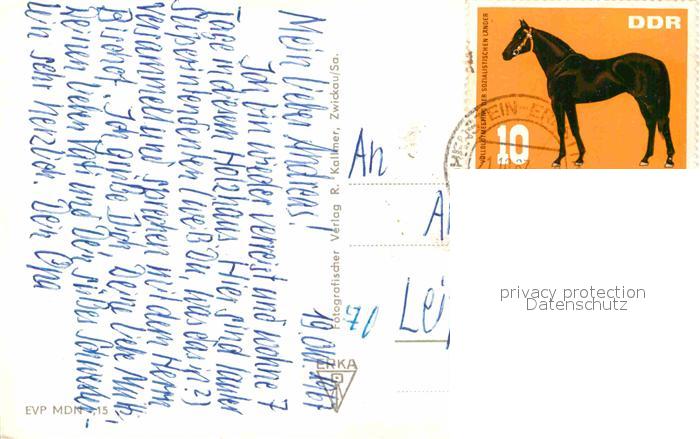 19. Okt. 1967
Mein lieber Andreas!
Ich bin wieder verreist und wohne 7
Tage in einem Holzhaus. Hier sind lauter
Superintendenten (weißt Du was das ist?)
versammelt und sprechen mit dem Herrn
Bischof. Ich grüße Dich, Deine liebe Mutti,
Deinen lieben Vati und Dein süßes Schwester-
lein sehr herzlich. Dein Opa
Fotografischer Verlag R. Kallmer, Zwickau/Sa.
ERKA
EVP MDN -,15
An
A
70
Lei
DDR
VOLLBLUTMEETING DER SOZIALISTISCHEN LÄNDER
10
privacy protection
Datenschutz